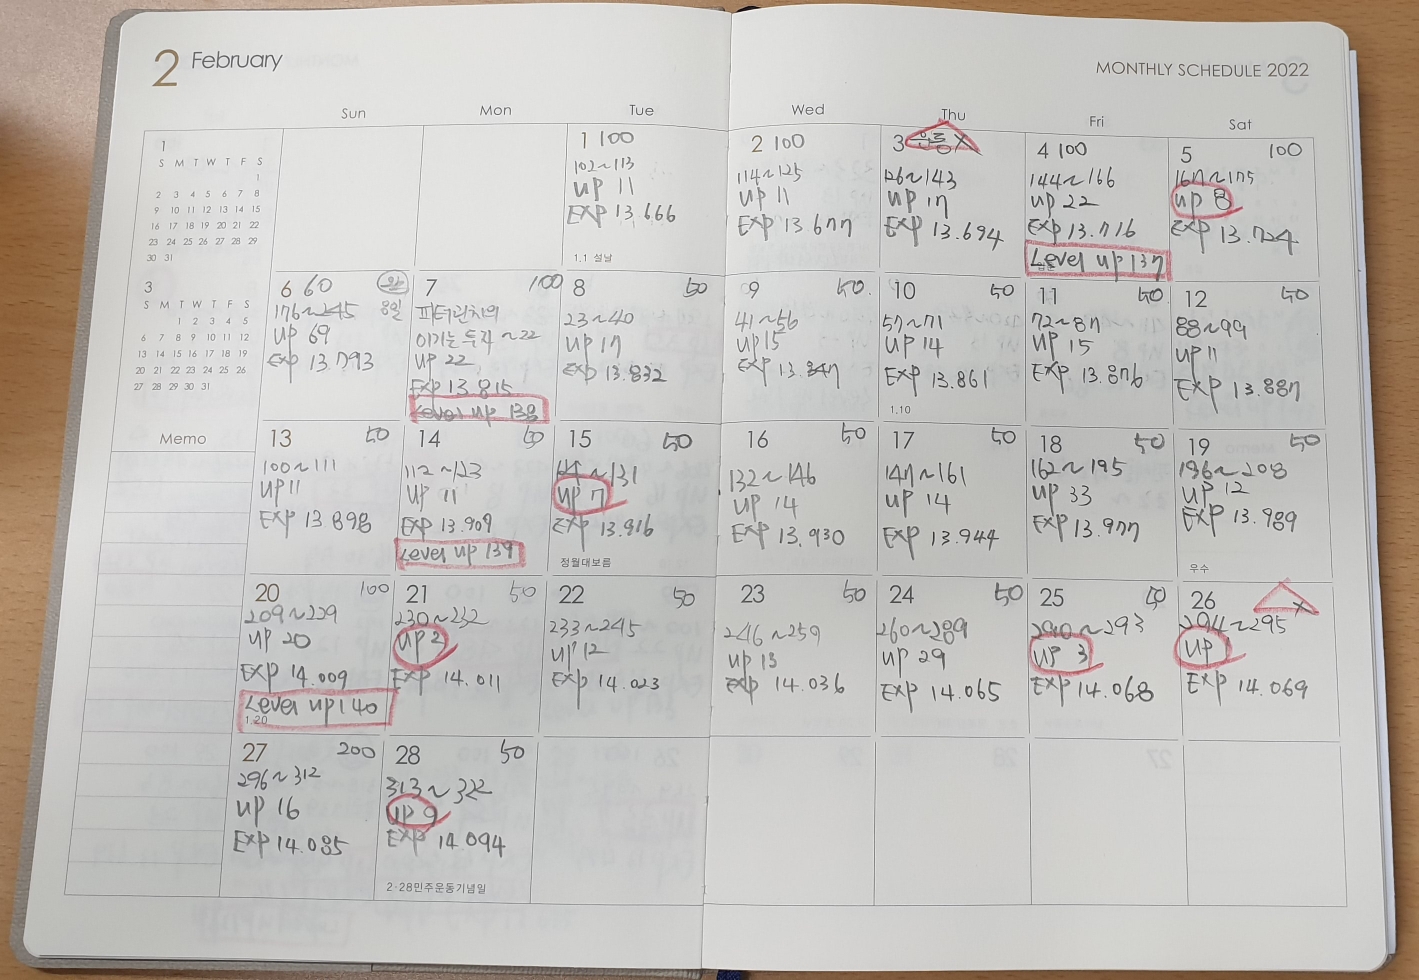 2 February
MONTHLY SCHEDULE 2022
Sun Mon Tue Wed Thu Fri Sat
1
S M T W T F S
1
2 3 4 5 6 7 8
9 10 11 12 13 14 15
16 17 18 19 20 21 22
23 24 25 26 27 28 29
30 31
3
S M T W T F S
1 2 3 4 5
6 7 8 9 10 11 12
13 14 15 16 17 18 19
20 21 22 23 24 25 26
27 28 29 30 31
Memo
1 100
102~113
UP 11
EXP 13.666
1.1 설날
2 100
114~125
UP 11
EXP 13.677
3 운동X
126~143
UP 17
EXP 13.694
4 100
144~166
UP 22
EXP 13.716
Level up 137
5 100
167~175
UP 8
EXP 13.724
6 60 완
176~245 8일
UP 69
EXP 13.793
7 100
피터린치의
이기는 투자 ~22
UP 22
EXP 13.815
Level up 138
8 50
23~40
UP 17
EXP 13.832
9 50.
41~56
UP 15
EXP 13.847
10 50
57~71
UP 14
EXP 13.861
1.10
11 50
72~87
UP 15
EXP 13.876
12 50
88~99
UP 11
EXP 13.887
13 50
100~111
UP 11
EXP 13.898
14 50
112~123
UP 11
EXP 13.909
Level up 139
15 50
124~131
UP 7
EXP 13.916
정월대보름
16 50
132~146
UP 14
EXP 13.930
17 50
147~161
UP 14
EXP 13.944
18 50
162~195
UP 33
EXP 13.977
19 50
196~208
UP 12
EXP 13.989
우수
20 100
209~229
UP 20
EXP 14.009
Level up 140
1.20
21 50
230~232
UP 2
EXP 14.011
22 50
233~245
UP 12
EXP 14.023
23 50
246~259
UP 13
EXP 14.036
24 50
260~289
UP 29
EXP 14.065
25 50
290~293
UP 3
EXP 14.068
26 X
294~295
UP 1
EXP 14.069
27 200
296~312
UP 16
EXP 14.085
28 50
313~322
UP 9
EXP 14.094
2·28민주운동기념일